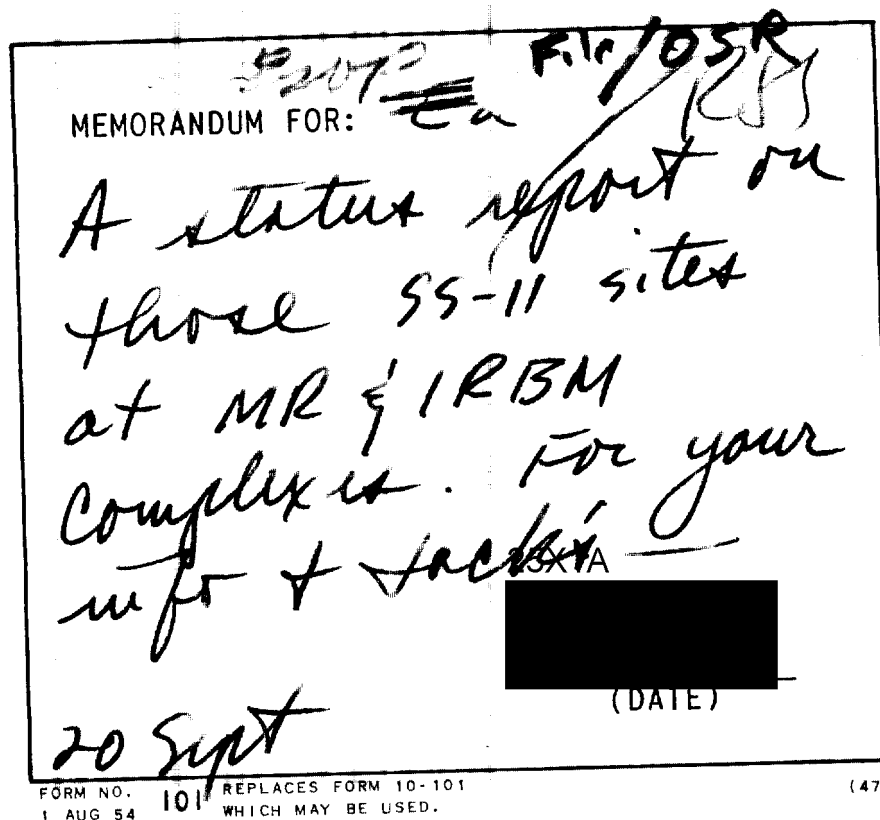 File/OSR
MEMORANDUM FOR:
A status report on
those SS-11 sites
at MR & IRBM
Complexes. For your
info + Jack's
(DATE)
20 Sept
FORM NO. 101 REPLACES FORM 10-101
1 AUG 54 WHICH MAY BE USED.
(47